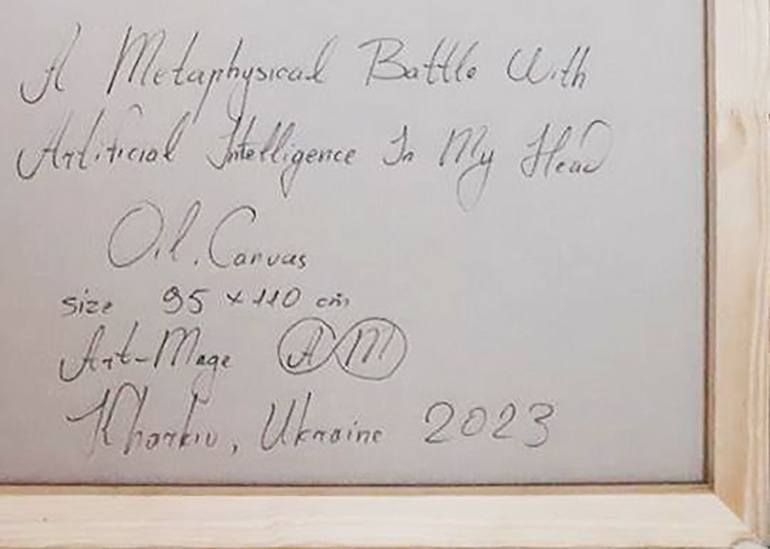 A Metaphysical Battle With
Artificial Intelligence In My Head
Oil. Canvas
size 95 x 110 cm
Art-Mage A M
Kharkiv, Ukraine 2023